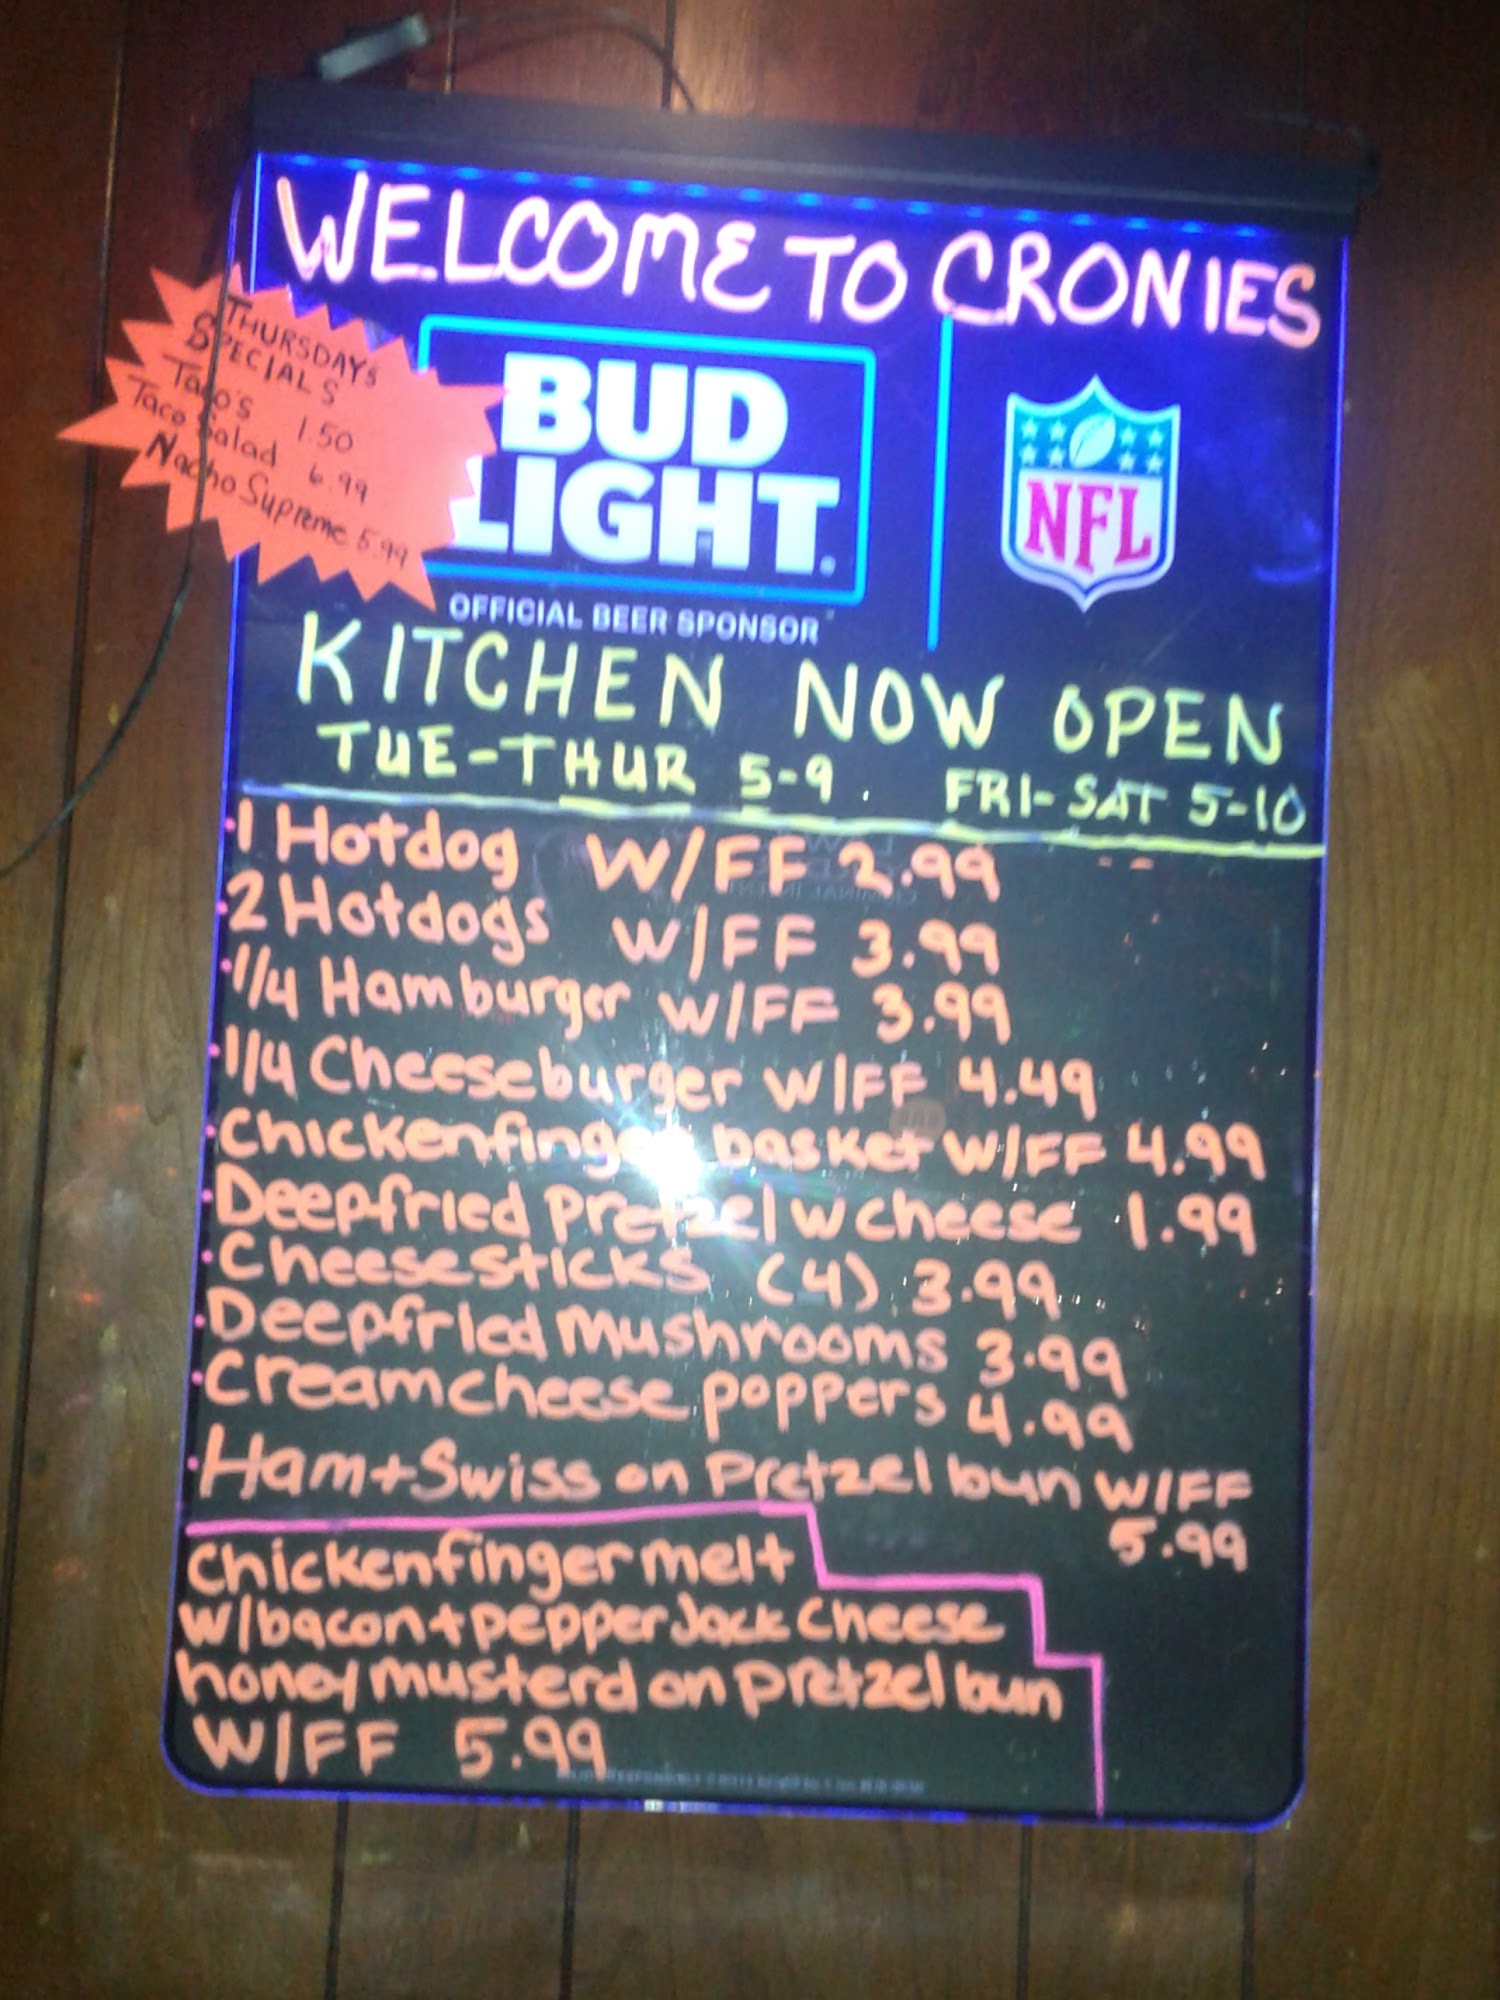 WELCOME TO CRONIES
THURSDAYS
SPECIALS
Taco's 1.50
Taco Salad 6.99
Nacho Supreme 5.99
BUD
LIGHT.
OFFICIAL BEER SPONSOR
NFL
KITCHEN NOW OPEN
TUE-THUR 5-9. FRI-SAT 5-10
·1 Hotdog W/FF 2.99
·2 Hotdogs W/FF 3.99
·1/4 Hamburger W/FF 3.99
·1/4 Cheeseburger W/FF 4.49
·Chickenfinger basket W/FF 4.99
·Deepfried Pretzel W cheese 1.99
·Cheesesticks (4) 3.99
·Deepfried Mushrooms 3.99
·Creamcheese poppers 4.99
·Ham+Swiss on Pretzel bun W/FF
5.99
Chickenfinger melt
W/bacon+pepper Jack Cheese
honey musterd on pretzel bun
W/FF 5.99